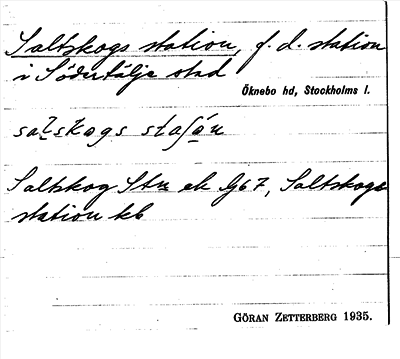 Saltskogs station, f. d. station
i Södertälje stad
Öknebo hd, Stockholms l.
salskogs staʃón
Saltskog Stn ek Gj67, Saltskogs
station kb
GÖRAN ZETTERBERG 1935.